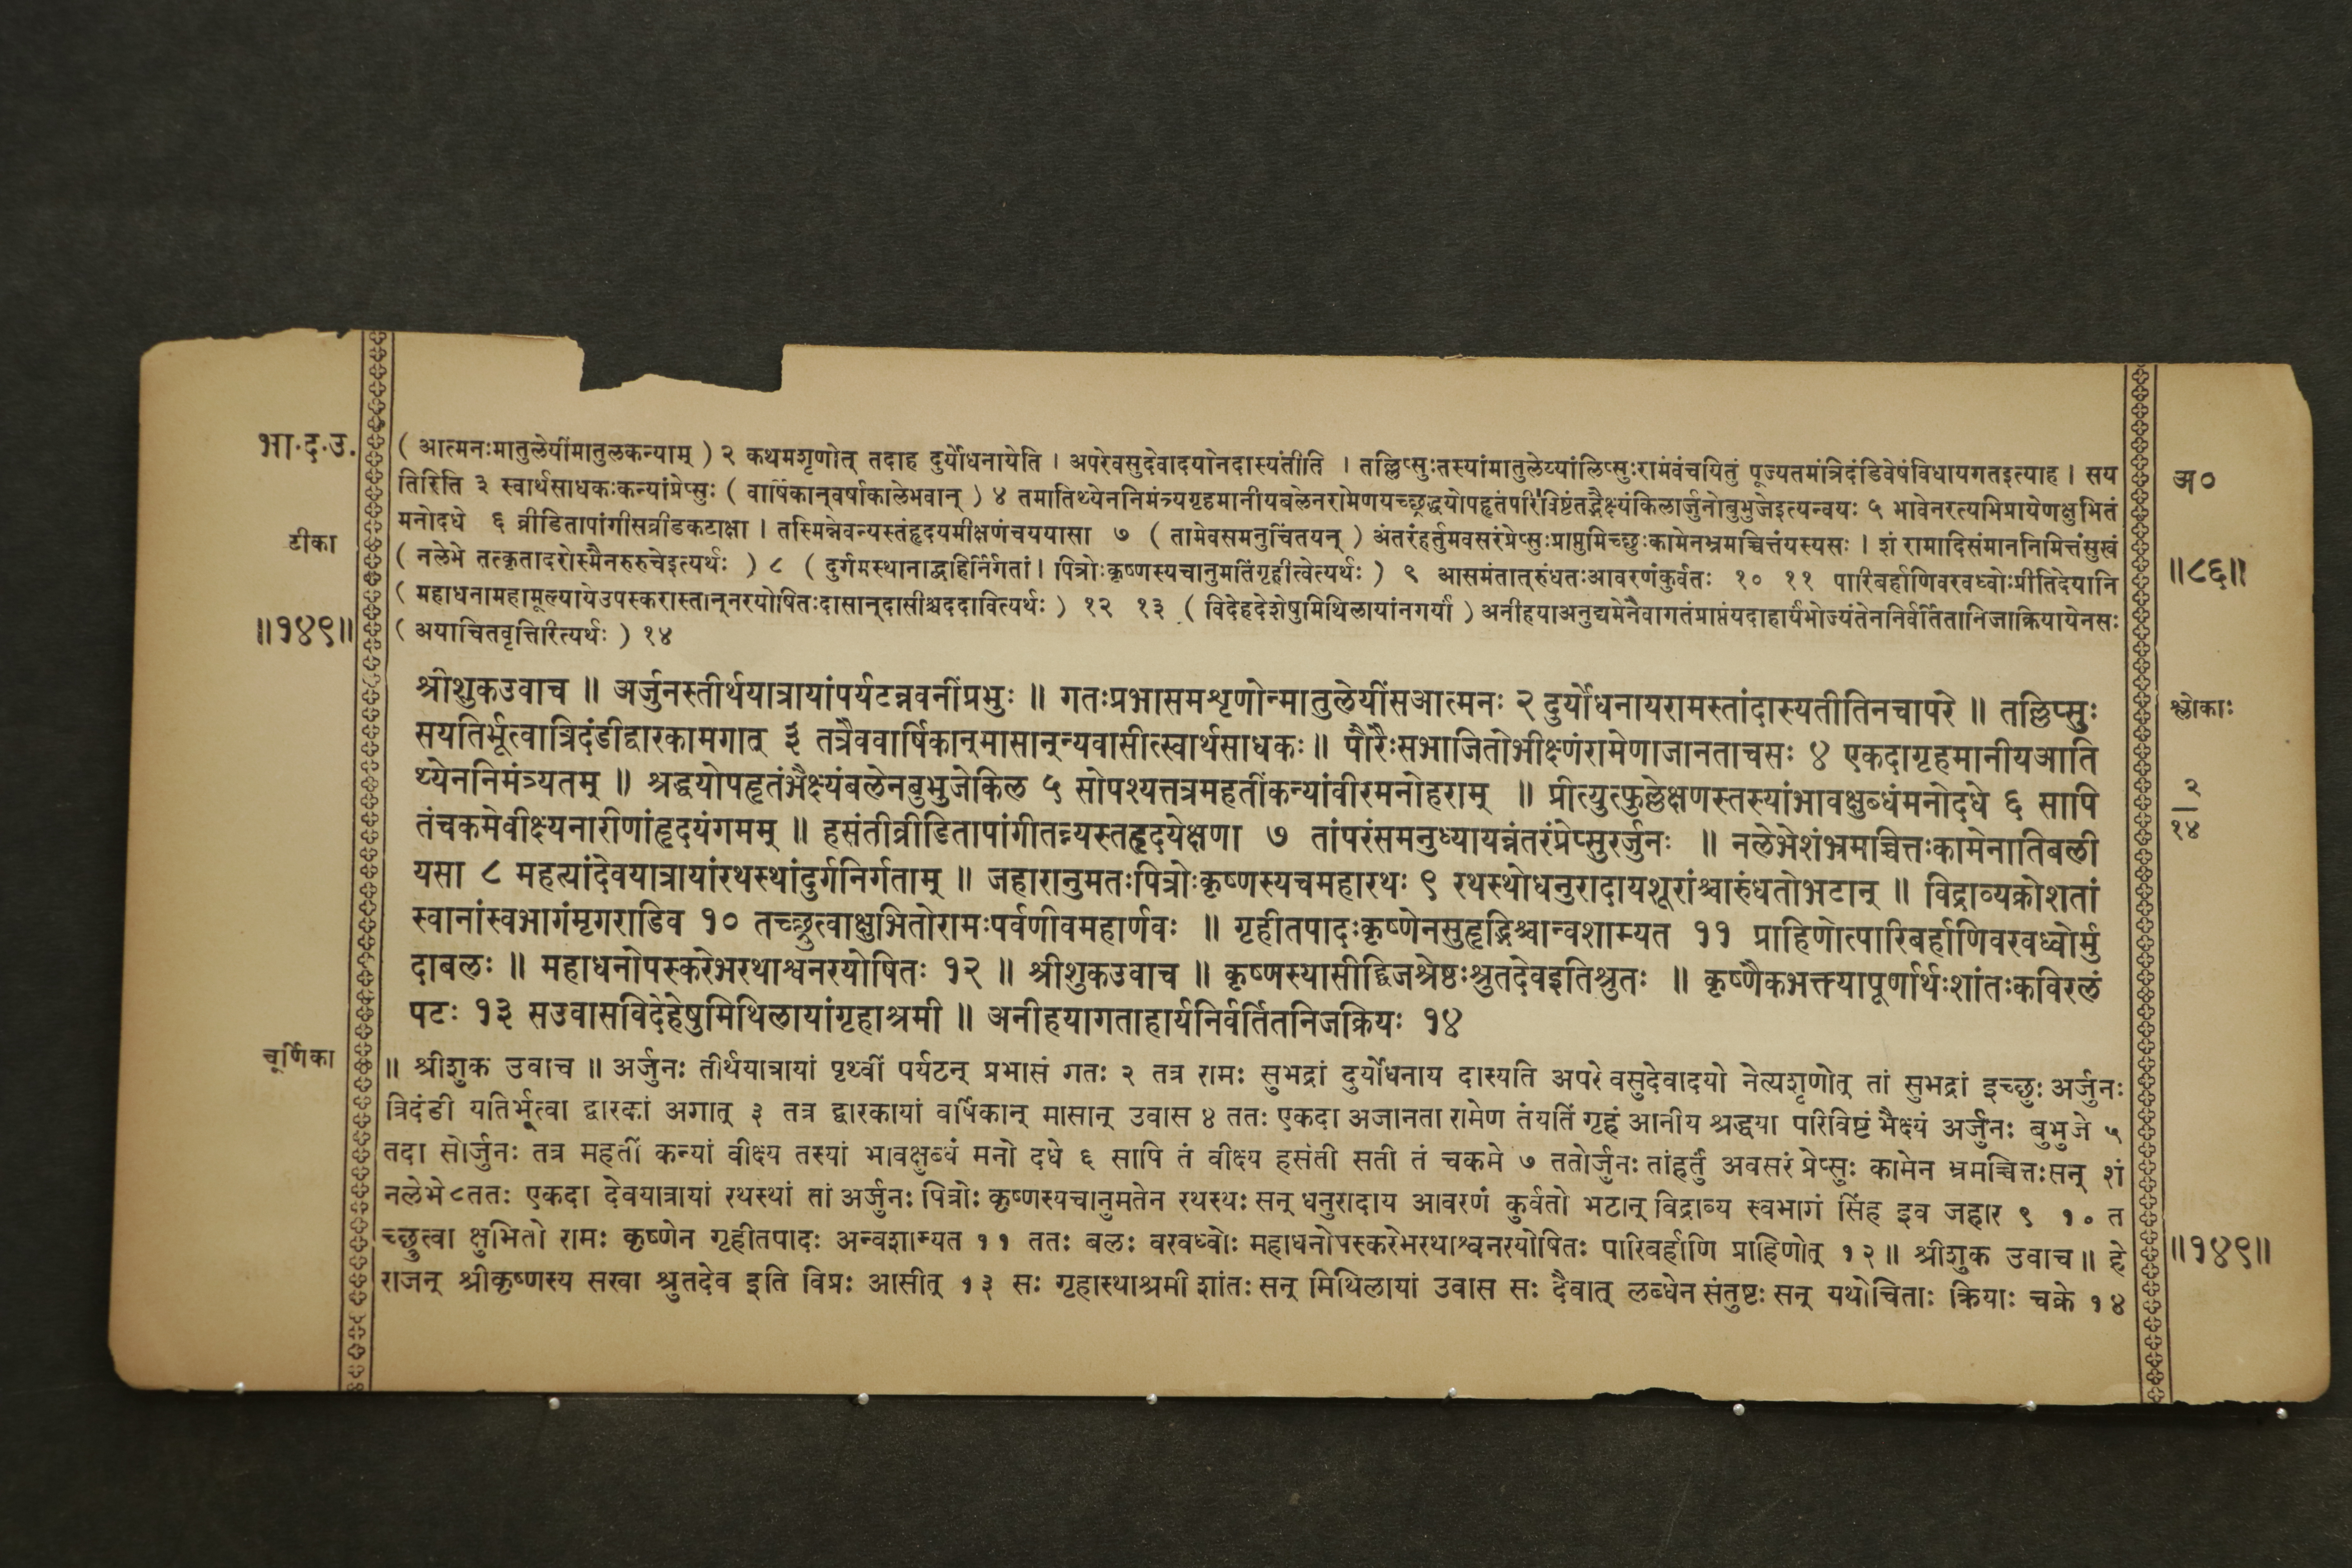 भा.द.उ.
( आत्मनःमातुलेयींमातुलकन्याम् ) २ कथमशृणोत् तदाह दुर्योधनायेति । अपरेवसुदेवादयोनदास्यंतीति । तल्लिप्सुःतस्यांमातुलेय्यांलिप्सुःरामंवंचयितुं पूज्यतमंत्रिदंडिवेषंविधायगतइत्याह । सय
तिरिति ३ स्वार्थसाधकःकन्यांप्रेप्सुः ( वार्षिकान्वर्षाकालेभवान् ) ४ तमातिथ्येननिमंत्र्यगृहमानीयबलेनरामेणयच्छ्रद्धयोपहृतंपरिविष्टंतद्भैक्ष्यंकिलार्जुनोबुभुजेइत्यन्वयः ५ भावेनरत्यभिप्रायेणक्षुभितं
मनोदधे ६ व्रीडितापांगीसव्रीडकटाक्षा । तस्मिन्नेवन्यस्तंहृदयमीक्षणंचययासा ७ ( तामेवसमनुचिंतयन् ) अंतरंहर्तुमवसरंप्रेप्सुःप्राप्तुमिच्छुःकामेनभ्रमच्चित्तंयस्यसः । शं रामादिसंमाननिमित्तंसुखं
( नलेभे तत्कृतादरोस्मैनरुरुचेइत्यर्थः ) ८ ( दुर्गमस्थानाद्बहिर्निर्गतां । पित्रोःकृष्णस्यचानुमतिंगृहीत्वेत्यर्थः ) ९ आसमंतात्रुंधतःआवरणंकुर्वतः १० ११ पारिबर्हाणिवरवध्वोःप्रीतिदेयानि
( महाधनामहामूल्यायेउपस्करास्तान्नरयोषितःदासान्दासीश्चददावित्यर्थः ) १२ १३ ( विदेहदेशेषुमिथिलायांनगर्यां ) अनीहयाअनुद्यमेनैवागतंप्राप्तंयदाहार्यंभोज्यंतेननिर्वर्तितानिजाक्रियायेनसः
( अयाचितवृत्तिरित्यर्थः ) १४
टीका
॥१४९॥
अ०
॥८६॥
श्रीशुकउवाच ॥ अर्जुनस्तीर्थयात्रायांपर्यटन्नवनींप्रभुः ॥ गतःप्रभासमशृणोन्मातुलेयींसआत्मनः २ दुर्योधनायरामस्तांदास्यतीतिनचापरे ॥ तल्लिप्सुः
सयतिर्भूत्वात्रिदंडीद्वारकामगात् ३ तत्रैववार्षिकान्मासान्न्यवासीत्स्वार्थसाधकः ॥ पौरैःसभाजितोभीक्ष्णंरामेणाजानताचसः ४ एकदागृहमानीयआति
थ्येननिमंत्र्यतम् ॥ श्रद्धयोपहृतंभैक्ष्यंबलेनबुभुजेकिल ५ सोपश्यत्तत्रमहतींकन्यांवीरमनोहराम् ॥ प्रीत्युत्फुल्लेक्षणस्तस्यांभावक्षुब्धंमनोदधे ६ सापि
तंचकमेवीक्ष्यनारीणांहृदयंगमम् ॥ हसंतीव्रीडितापांगीतन्न्यस्तहृदयेक्षणा ७ तांपरंसमनुध्यायन्नंतरंप्रेप्सुरर्जुनः ॥ नलेभेशंभ्रमच्चित्तःकामेनातिबली
यसा ८ महत्यांदेवयात्रायांरथस्थांदुर्गनिर्गताम् ॥ जहारानुमतःपित्रोःकृष्णस्यचमहारथः ९ रथस्थोधनुरादायशूरांश्चारुंधतोभटान् ॥ विद्राव्यक्रोशतां
स्वानांस्वभागंमृगराडिव १० तच्छ्रुत्वाक्षुभितोरामःपर्वणीवमहार्णवः ॥ गृहीतपादःकृष्णेनसुहृद्भिश्चान्वशाम्यत ११ प्राहिणोत्पारिबर्हाणिवरवध्वोर्मु
दाबलः ॥ महाधनोपस्करेभरथाश्वनरयोषितः १२ ॥ श्रीशुकउवाच ॥ कृष्णस्यासीद्द्विजश्रेष्ठःश्रुतदेवइतिश्रुतः ॥ कृष्णैकभक्त्यापूर्णार्थःशांतःकविरलं
पटः १३ सउवासविदेहेषुमिथिलायांगृहाश्रमी ॥ अनीहयागताहार्यनिर्वर्तितनिजक्रियः १४
श्लोकाः
२
१४
चूर्णिका
॥ श्रीशुक उवाच ॥ अर्जुनः तीर्थयात्रायां पृथ्वीं पर्यटन् प्रभासं गतः २ तत्र रामः सुभद्रां दुर्योधनाय दास्यति अपरे वसुदेवादयो नेत्यशृणोत् तां सुभद्रां इच्छुः अर्जुनः
त्रिदंडी यतिर्भूत्वा द्वारकां अगात् ३ तत्र द्वारकायां वार्षिकान् मासान् उवास ४ ततः एकदा अजानता रामेण तंयतिं गृहं आनीय श्रद्धया परिविष्टं भैक्ष्यं अर्जुनः बुभुजे ५
तदा सोर्जुनः तत्र महतीं कन्यां वीक्ष्य तस्यां भावक्षुब्धं मनो दधे ६ सापि तं वीक्ष्य हसंती सती तं चकमे ७ ततोर्जुनः तांहर्तुं अवसरं प्रेप्सुः कामेन भ्रमच्चित्तःसन् शं
नलेभे ८ ततः एकदा देवयात्रायां रथस्थां तां अर्जुनः पित्रोः कृष्णस्यचानुमतेन रथस्थः सन् धनुरादाय आवरणं कुर्वतो भटान् विद्राव्य स्वभागं सिंह इव जहार ९ १० त
च्छ्रुत्वा क्षुभितो रामः कृष्णेन गृहीतपादः अन्वशाम्यत ११ ततः बलः वरवध्वोः महाधनोपस्करेभरथाश्वनरयोषितः पारिबर्हाणि प्राहिणोत् १२ ॥ श्रीशुक उवाच ॥ हे
राजन् श्रीकृष्णस्य सखा श्रुतदेव इति विप्रः आसीत् १३ सः गृहास्थाश्रमी शांतः सन् मिथिलायां उवास सः दैवात् लब्धेन संतुष्टः सन् यथोचिताः क्रियाः चक्रे १४
॥१४९॥